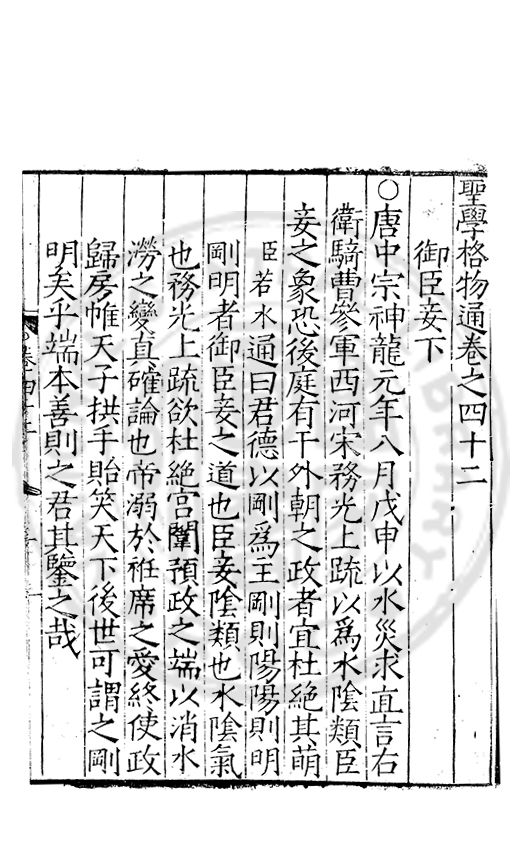 聖學格物通卷之四十二
御臣妾下
○唐中宗神龍元年八月戊申以水災求直言右
衛騎曹參軍西河宋務光上疏以為水陰類臣
妾之象恐後庭有干外朝之政者宜杜絕其萌
臣若水通曰君德以剛爲王剛則陽陽則明
剛明者御臣妾之道也臣妾陰類也水陰氣
也務光上疏欲杜絕宮闈預政之端以消水
澇之變真確論也帝溺於袵席之愛終使政
歸房帷天子拱手貽笑天下後世可謂之剛
明矣乎端本善則之君其鑒之哉